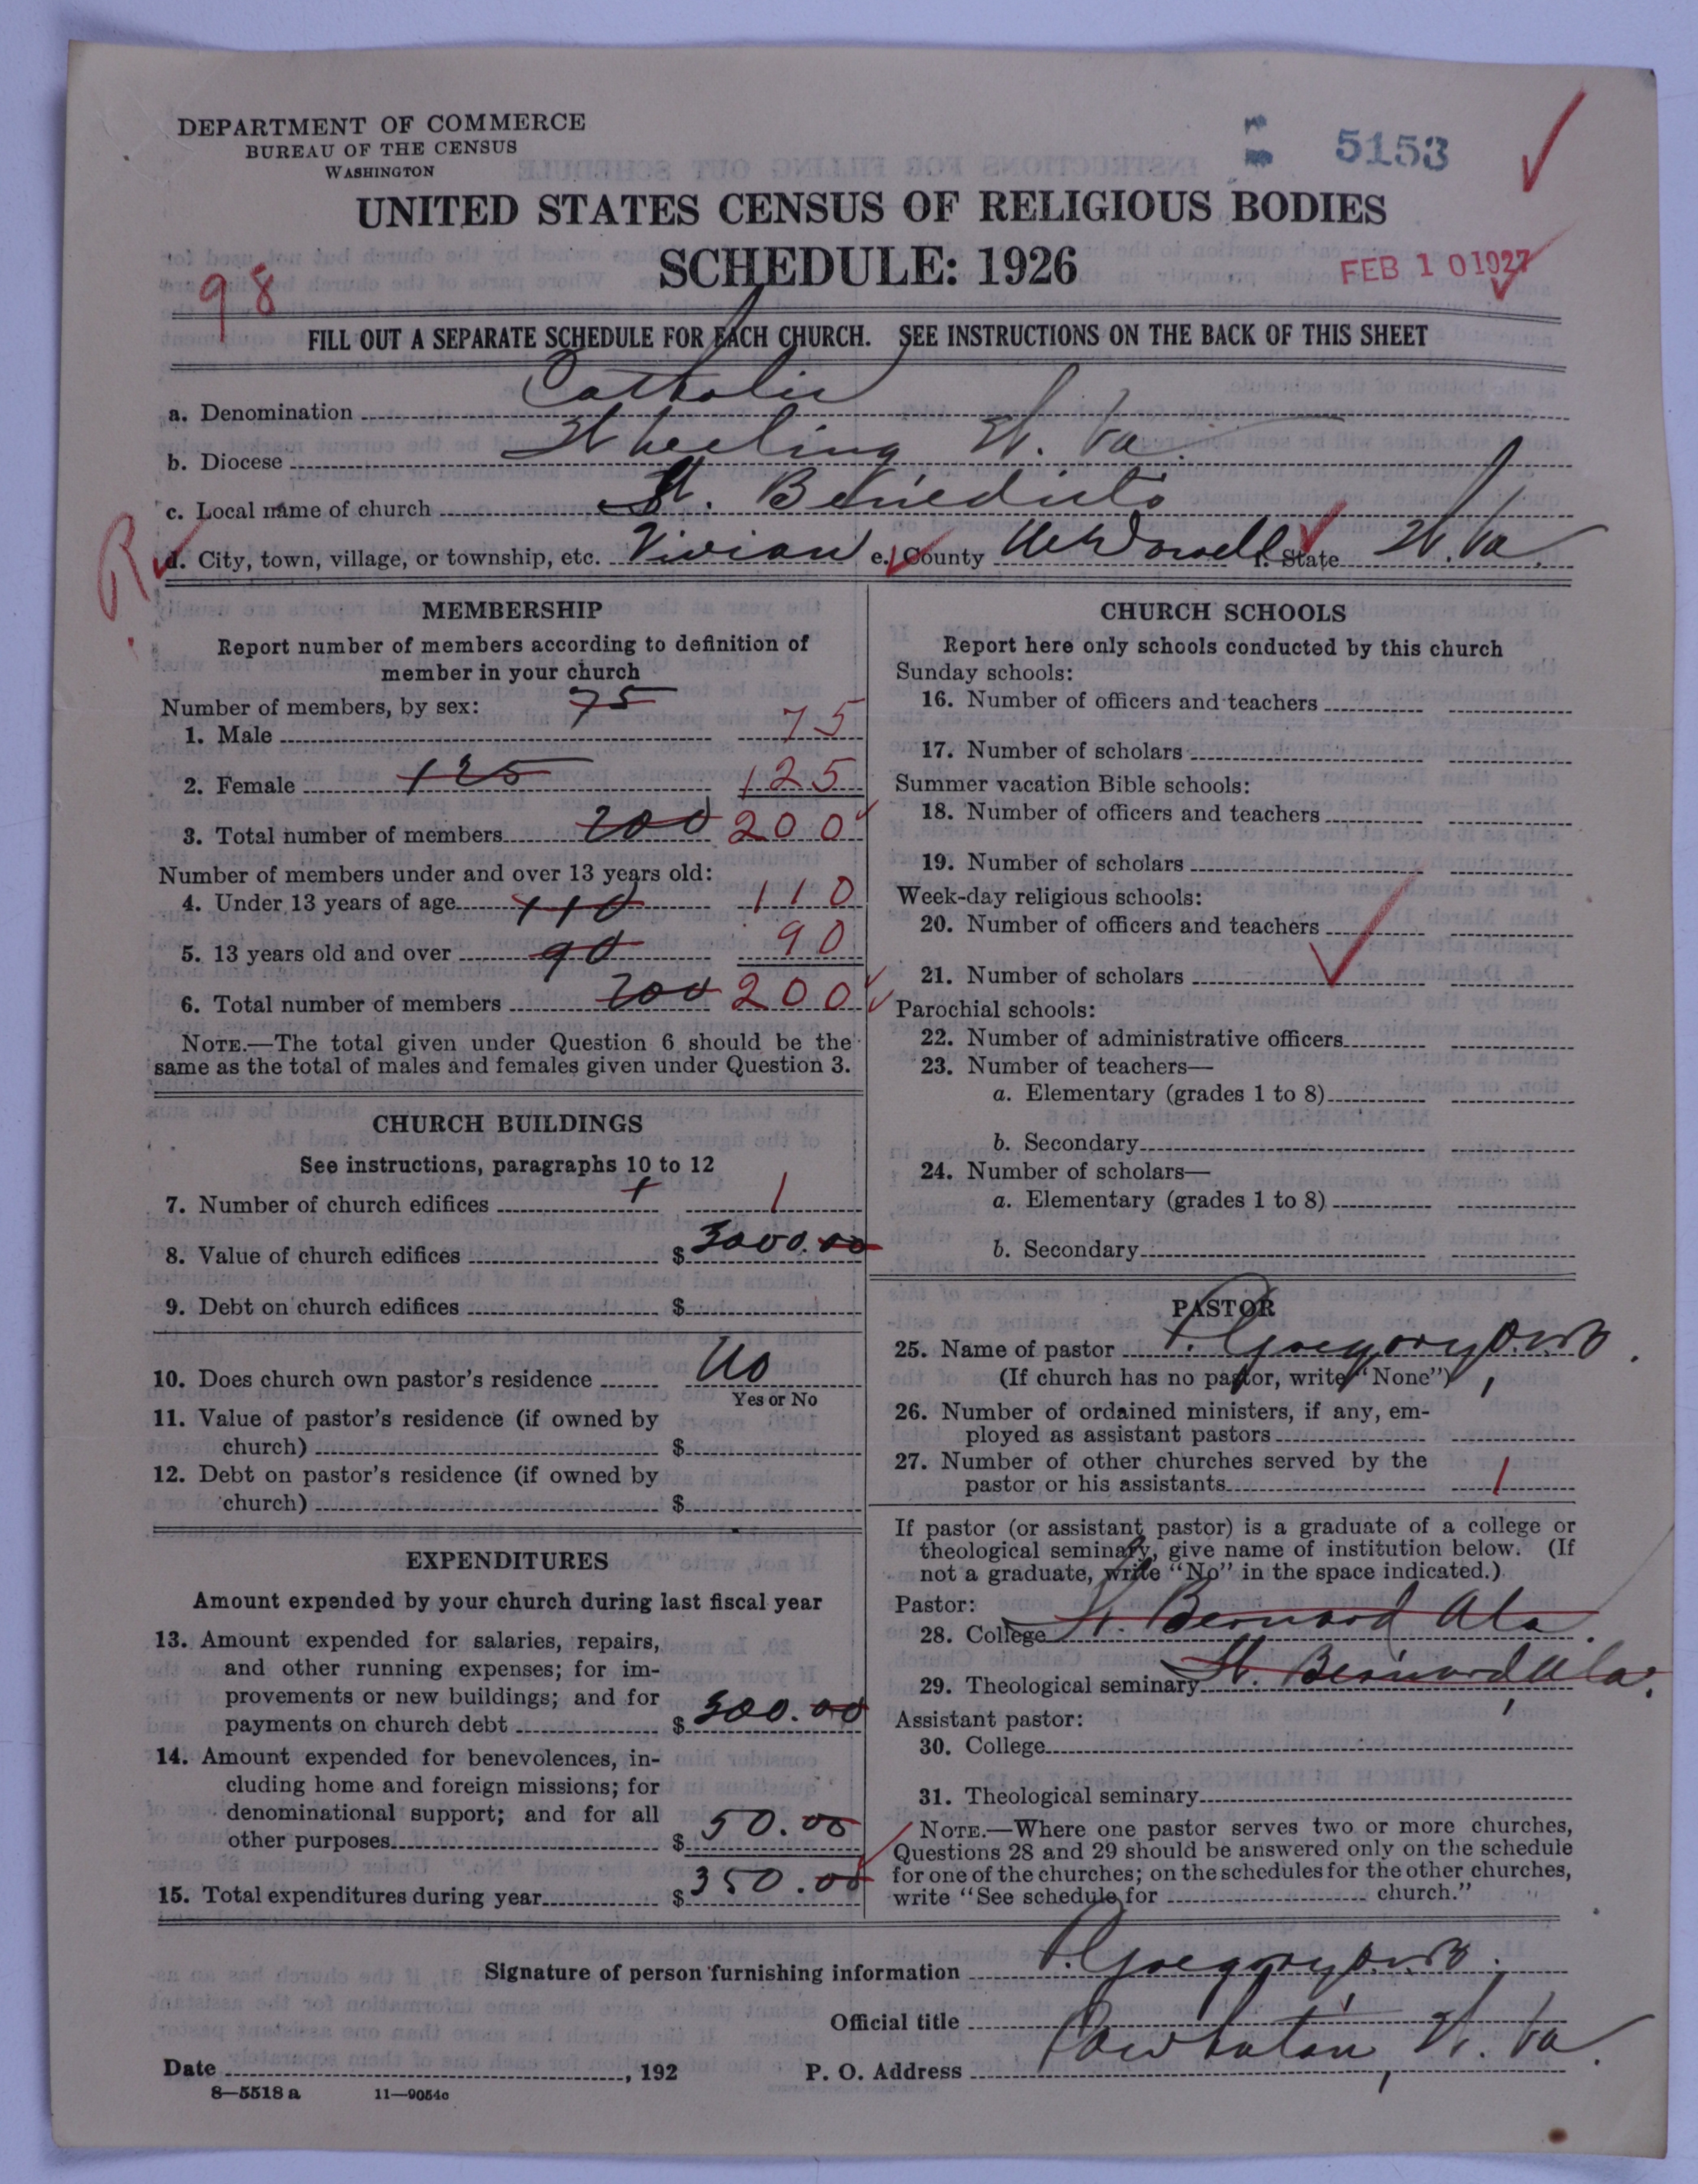 DEPARTMENT OF COMMERCE
BUREAU OF THE CENSUS
WASHINGTON
5153
UNITED STATES CENSUS OF RELIGIOUS BODIES
SCHEDULE: 1926
FEB 10 1927
98
FILL OUT A SEPARATE SCHEDULE FOR EACH CHURCH. SEE INSTRUCTIONS ON THE BACK OF THIS SHEET
a. Denomination Catholic
b. Diocese Wheeling W. Va.
c. Local name of church St. Benedicts
R
d. City, town, village, or township, etc. Vivian e. County McDowell f. State W. Va.
MEMBERSHIP
Report number of members according to definition of
member in your church
Number of members, by sex: 75
1. Male 75
2. Female 125 125
3. Total number of members 200 200
Number of members under and over 13 years old:
4. Under 13 years of age 110 110
5. 13 years old and over 90 90
6. Total number of members 200 200
NOTE.—The total given under Question 6 should be the
same as the total of males and females given under Question 3.
CHURCH BUILDINGS
See instructions, paragraphs 10 to 12
7. Number of church edifices 1 1
8. Value of church edifices $ 3000.00
9. Debt on church edifices $
10. Does church own pastor's residence No
Yes or No
11. Value of pastor's residence (if owned by
church) $
12. Debt on pastor's residence (if owned by
church) $
EXPENDITURES
Amount expended by your church during last fiscal year
13. Amount expended for salaries, repairs,
and other running expenses; for im-
provements or new buildings; and for
payments on church debt $ 300.00
14. Amount expended for benevolences, in-
cluding home and foreign missions; for
denominational support; and for all
other purposes $ 50.00
15. Total expenditures during year $ 350.00
CHURCH SCHOOLS
Report here only schools conducted by this church
Sunday schools:
16. Number of officers and teachers
17. Number of scholars
Summer vacation Bible schools:
18. Number of officers and teachers
19. Number of scholars
Week-day religious schools:
20. Number of officers and teachers
21. Number of scholars
Parochial schools:
22. Number of administrative officers
23. Number of teachers—
a. Elementary (grades 1 to 8)
b. Secondary
24. Number of scholars—
a. Elementary (grades 1 to 8)
b. Secondary
PASTOR
25. Name of pastor P. Gregory O.S.B.
(If church has no pastor, write "None")
26. Number of ordained ministers, if any, em-
ployed as assistant pastors
27. Number of other churches served by the
pastor or his assistants 1
If pastor (or assistant pastor) is a graduate of a college or
theological seminary, give name of institution below. (If
not a graduate, write "No" in the space indicated.)
Pastor:
28. College St. Bernard Ala.
29. Theological seminary St. Bernard, Ala.
Assistant pastor:
30. College
31. Theological seminary
NOTE.—Where one pastor serves two or more churches,
Questions 28 and 29 should be answered only on the schedule
for one of the churches; on the schedules for the other churches,
write "See schedule for church."
Signature of person furnishing information P. Gregory O.S.B.
Official title
Date , 192 P. O. Address Powhatan, W. Va.
8—5518 a 11—9054c